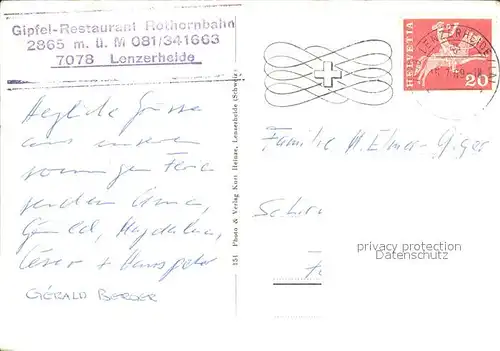 Gipfel-Restaurant Rothornbahn
2865 m. ü. M 081/341663
7078 Lenzerheide
Herzliche Grüsse
aus unseren
sonnigen Ferien
senden Anna,
Gérald, Magdalena,
César + Hanspeter
GÉRALD BERGER
151 Photo & Verlag Kurt Heinze, Lenzerheide (Schweiz)
LENZERHEIDE
HELVETIA
20
Familie H. Elmer-Giger
privacy protection
Datenschutz